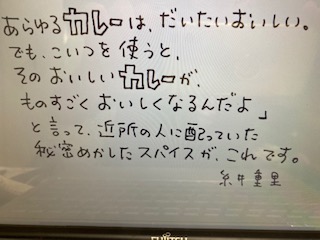 あらゆるカレーは、だいたいおいしい。
でも、こいつを使うと、
そのおいしいカレーが、
ものすごくおいしくなるんだよ」
と言って、近所の人に配っていた
秘密めかしたスパイスが、これです。
糸井重里
FUJITSU